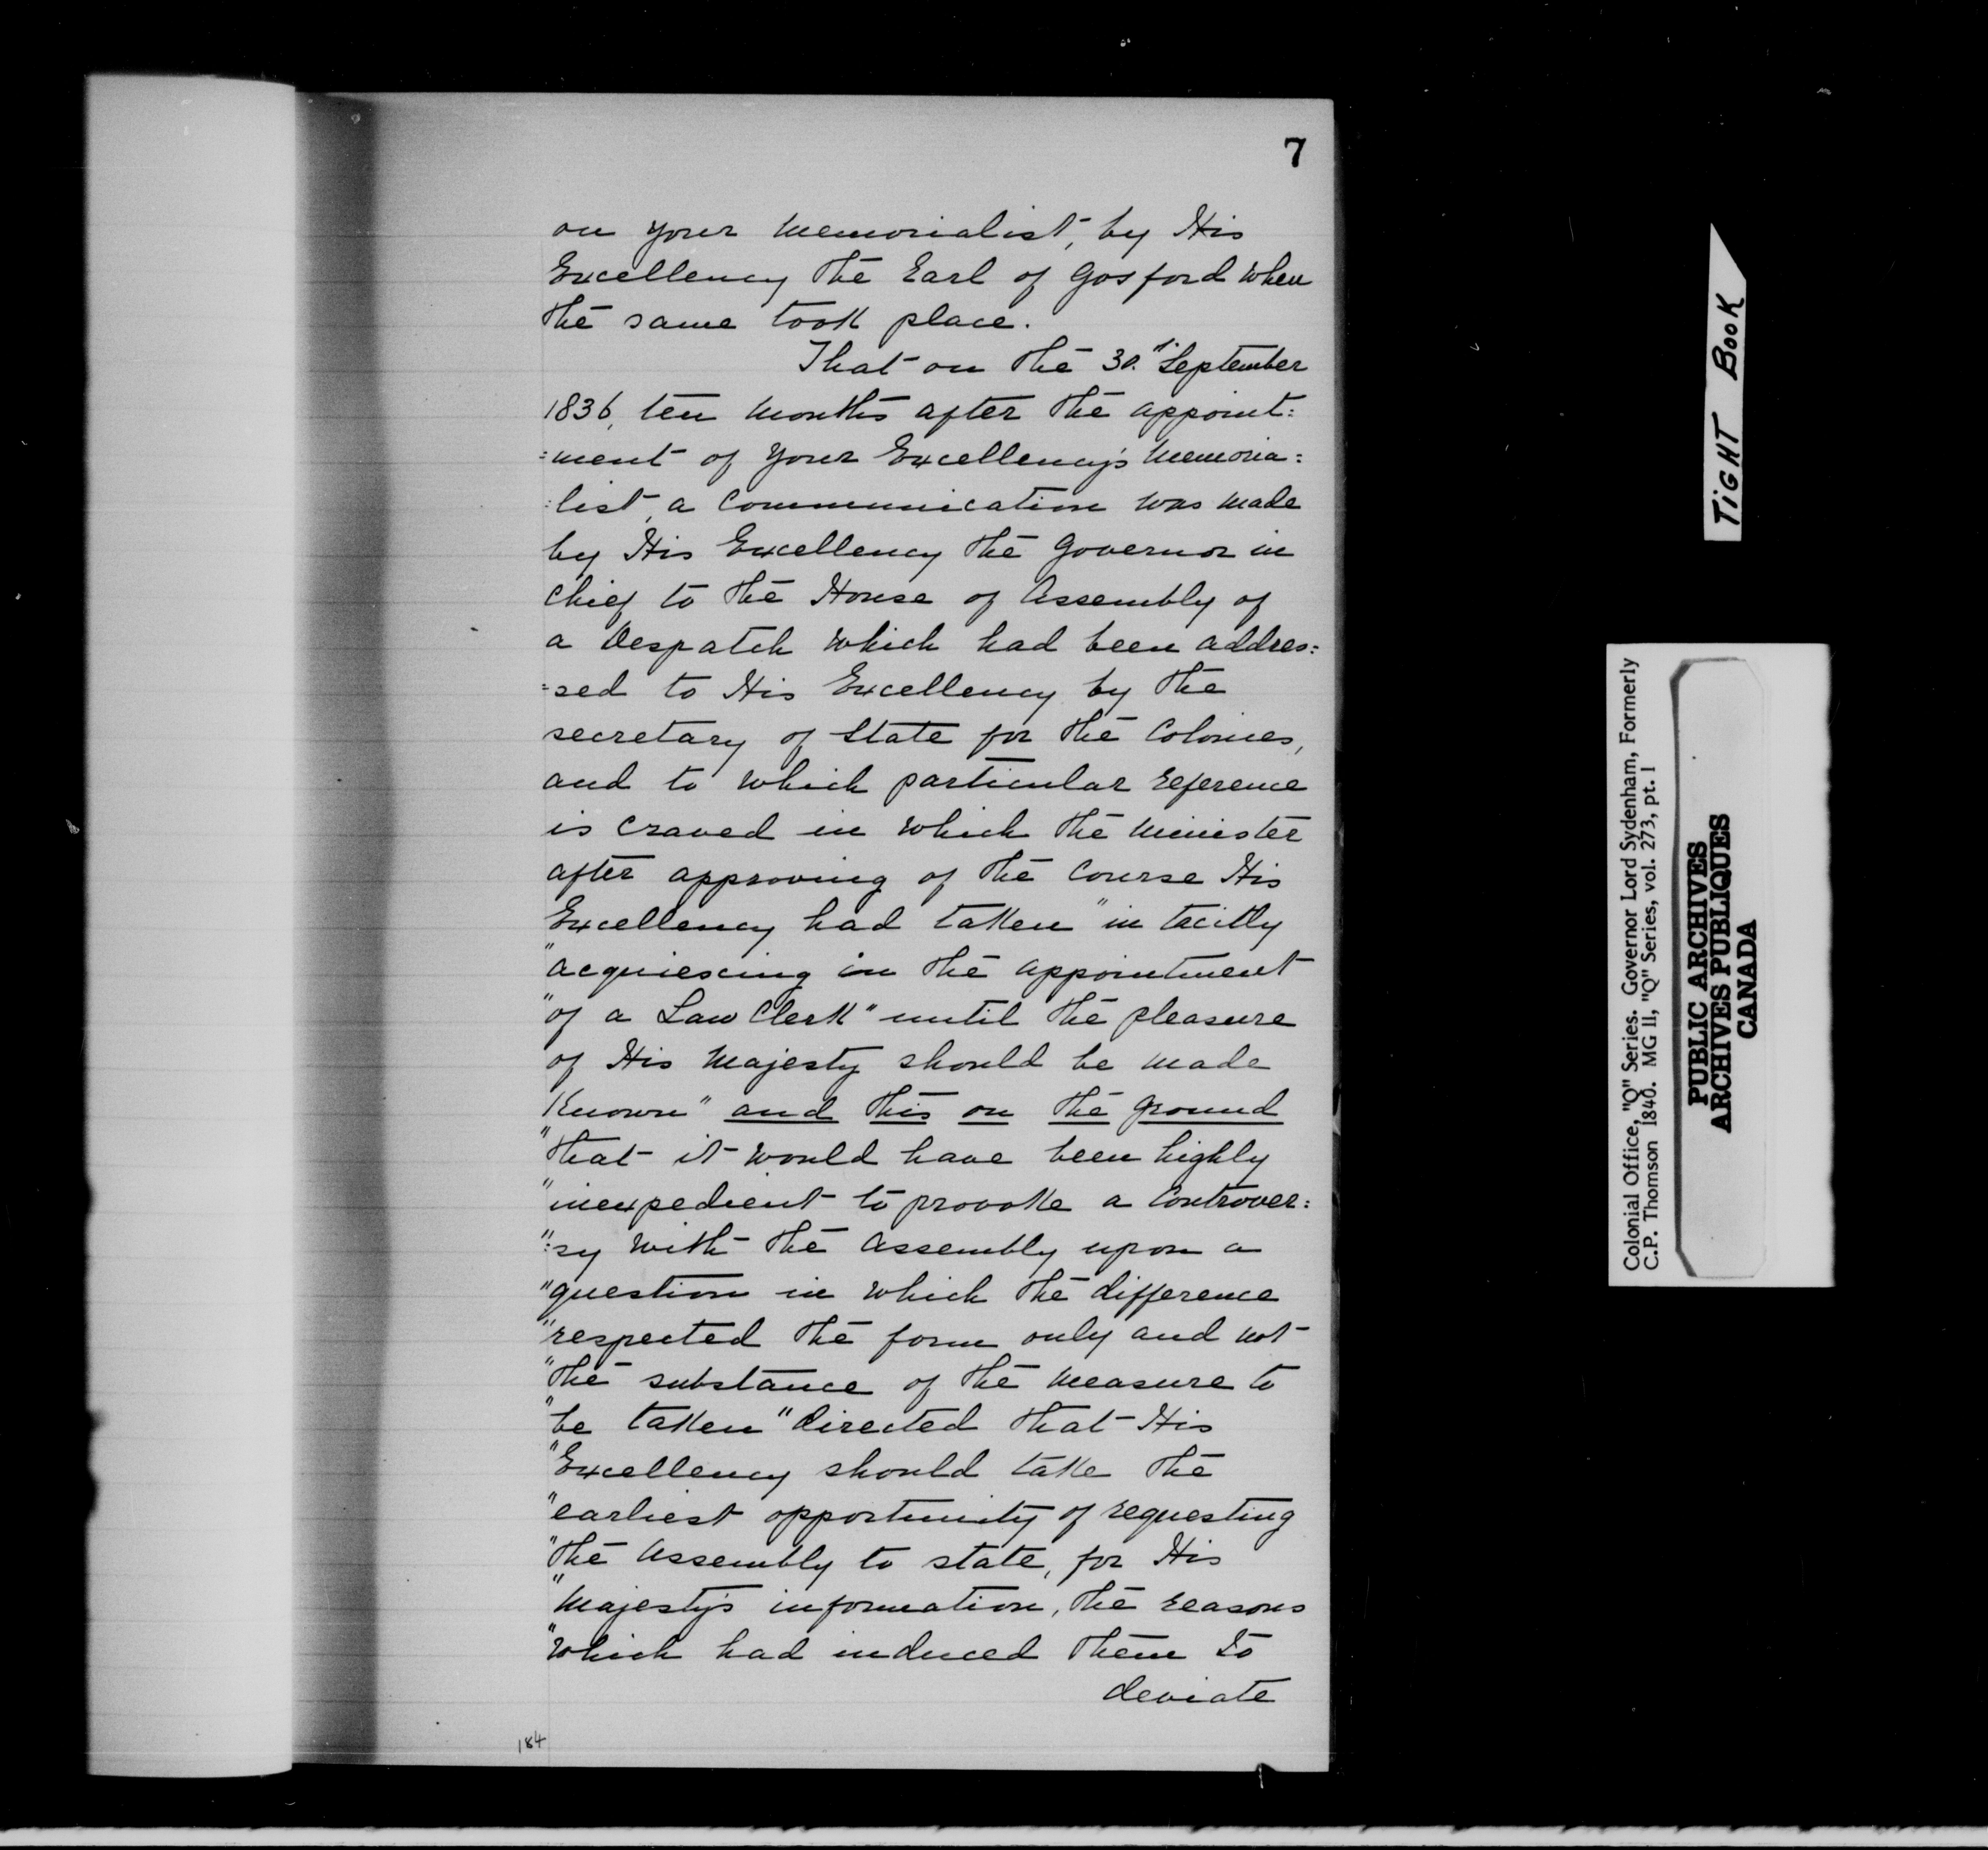 7
on your Memorialist, by His
Excellency the Earl of Gosford when
the same took place.
That on the 30.th September
1836, ten months after the appoint:
=ment of your Excellency's Memoria:
:list, a Communication was made
by His Excellency the Governor in
Chief to the House of Assembly of
a Despatch which had been addres:
=sed to His Excellency by the
secretary of State for the Colonies,
and to which particular reference
is craved in which the Minister
after approving of the Course His
Excellency had taken "in tacitly
"acquiescing in the appointment
"of a Law Clerk" until the pleasure
of His Majesty should be made
Known" and this on the ground
"that it would have been highly
"inexpedient to provoke a Controver:
":sy with the Assembly upon a
"question in which the difference
"respected the form only and not
"the substance of the measure to
"be taken" directed that His
"Excellency should take the
"earliest opportunity of requesting
"the Assembly to state, for His
"Majesty's information, the reasons
"which had induced them to
deviate
184
TIGHT BOOK
Colonial Office, "Q" Series. Governor Lord Sydenham, Formerly
C.P. Thomson 1840. MG 11, "Q" Series, vol. 273, pt. 1
PUBLIC ARCHIVES
ARCHIVES PUBLIQUES
CANADA